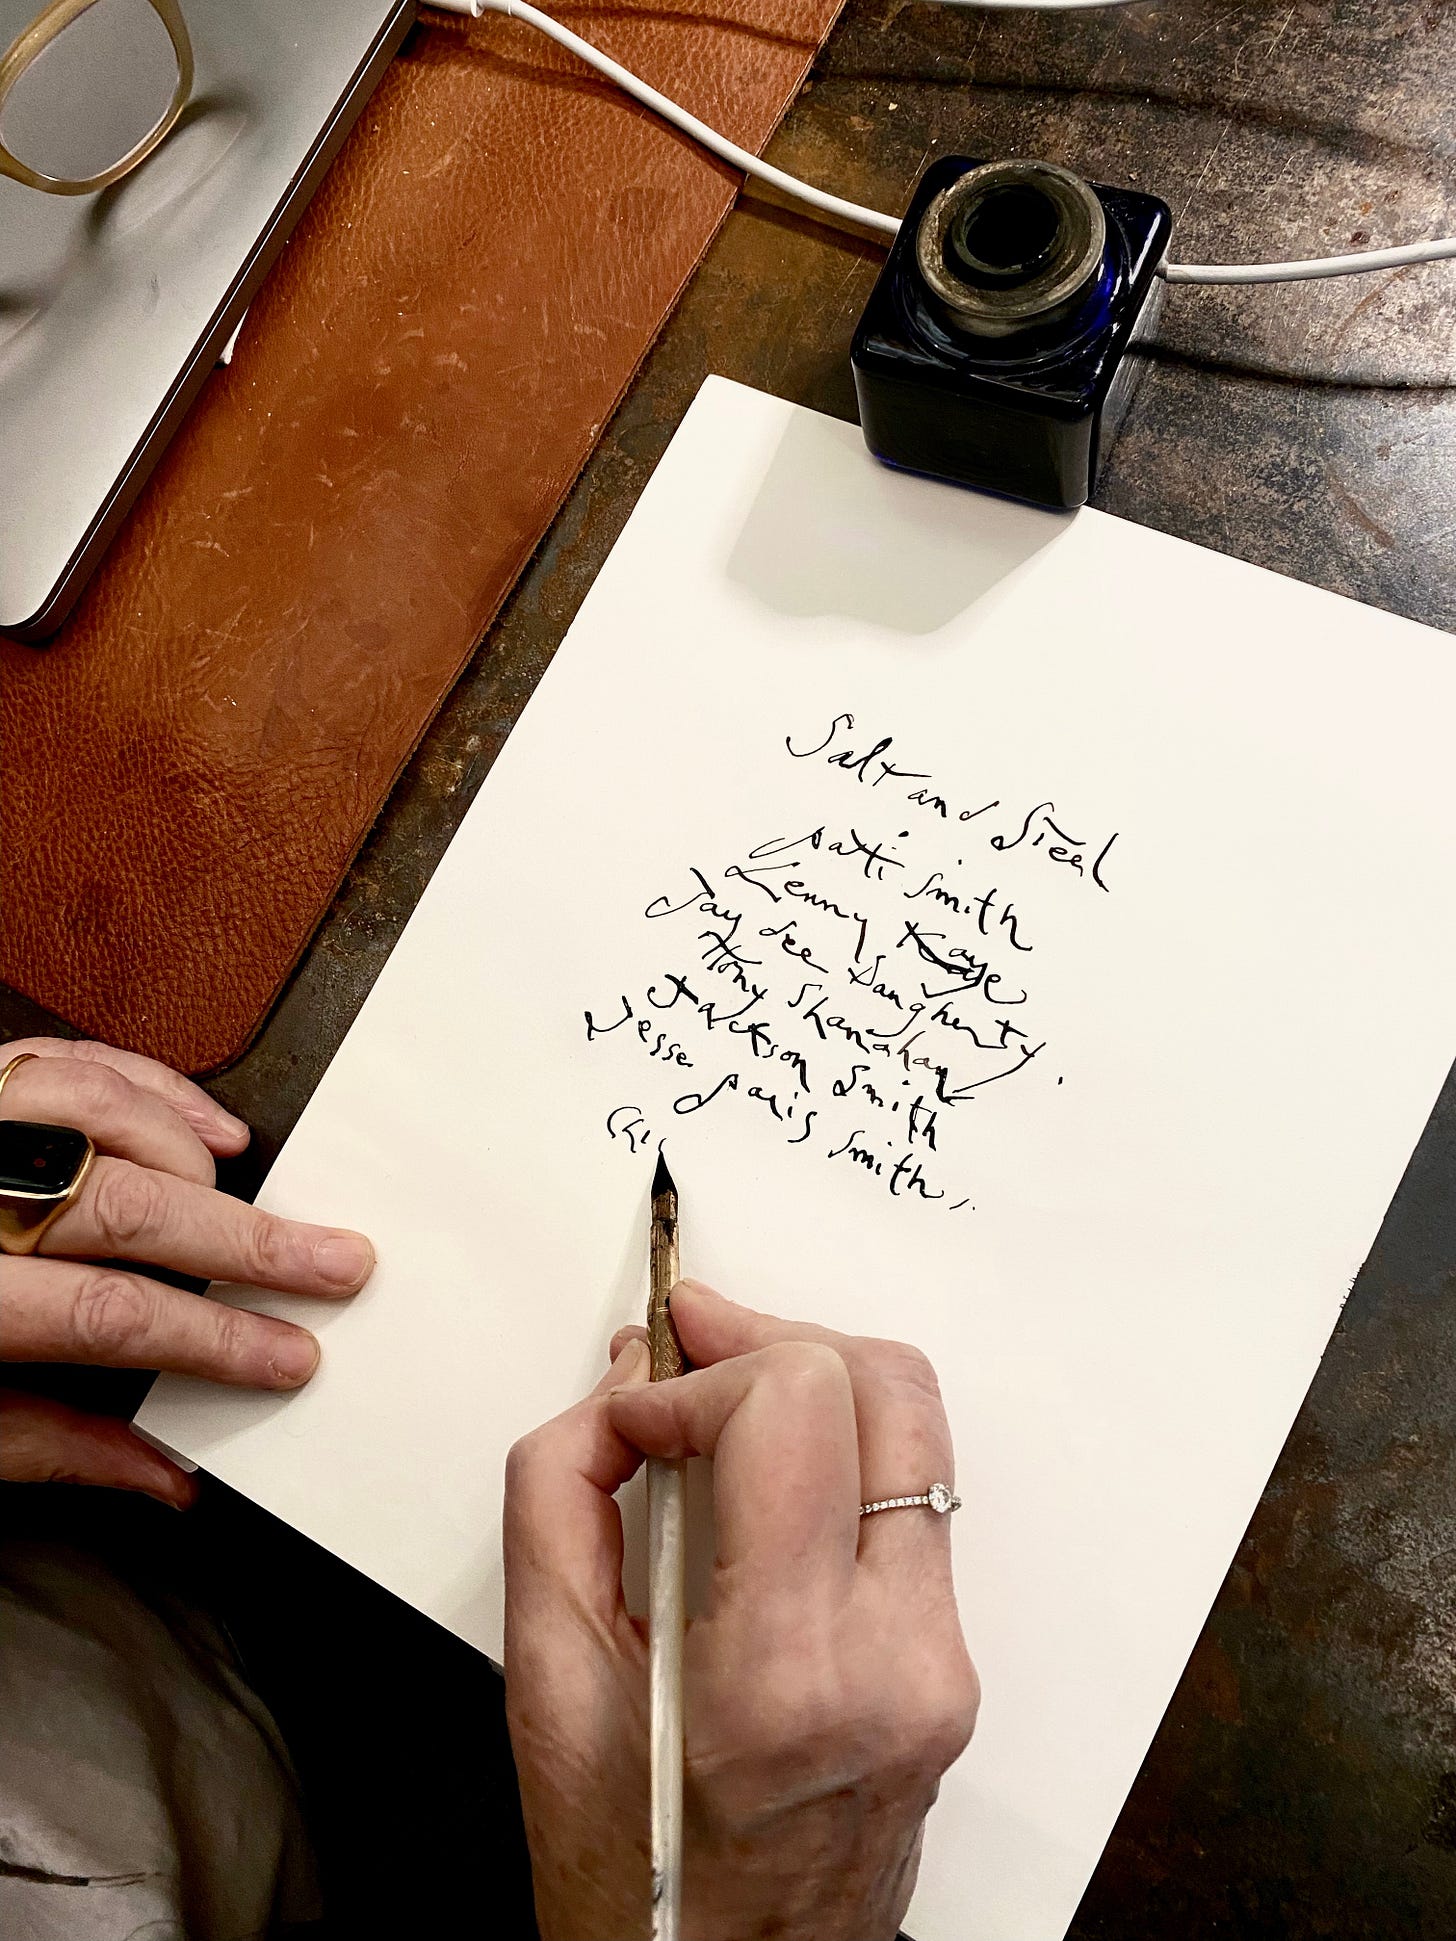 Salt and Steel
patti smith
Lenny Kaye
Jay Dee Daugherty.
Tony Shanahan
Jackson Smith
Jesse paris Smith